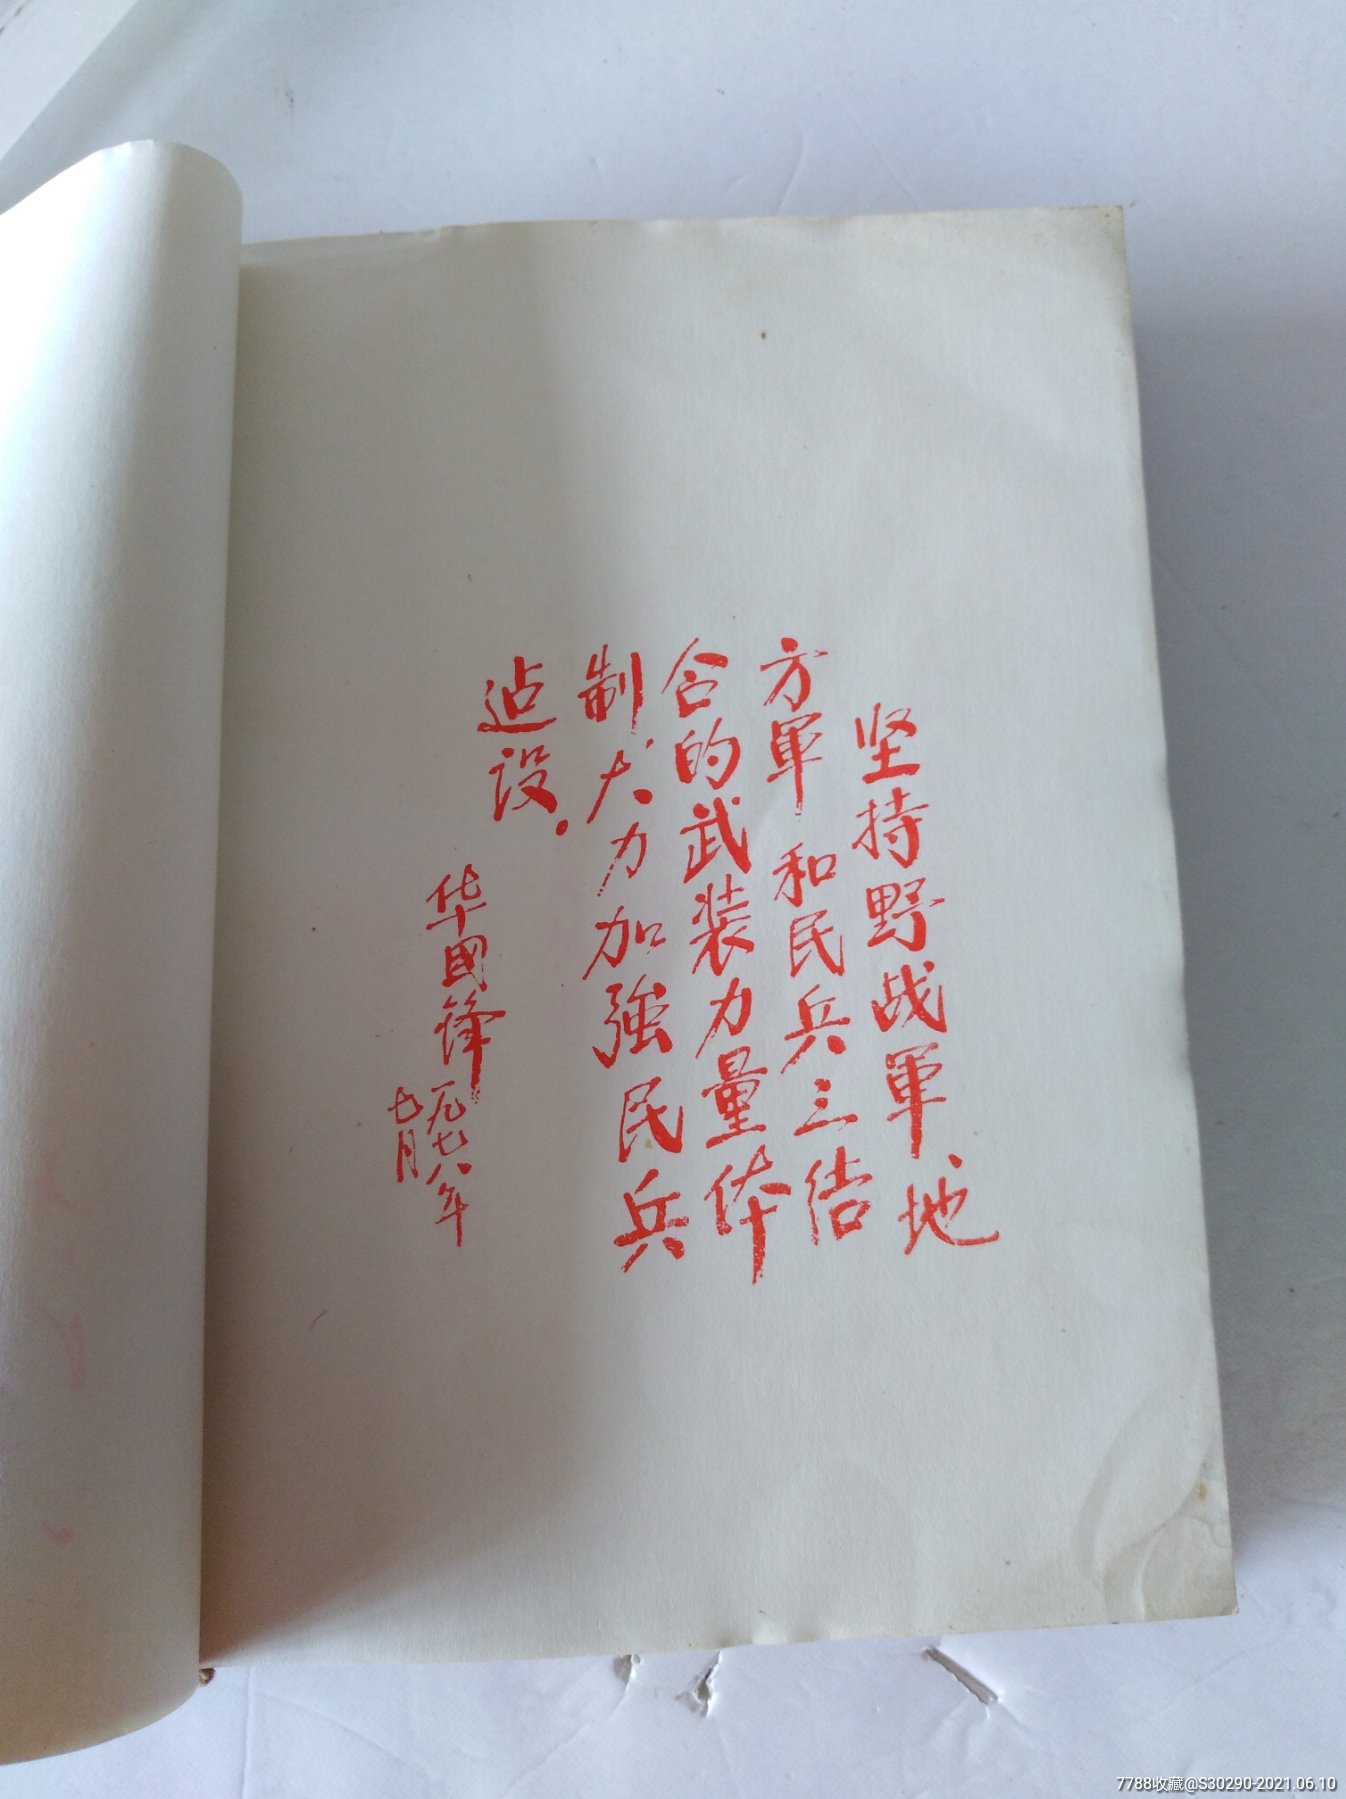 坚持野战軍、地
方軍和民兵三结
合的武装力量体
制、大力加強民兵
建设。
华國锋
一九七八年
七月
7788收藏@S30290-2021.06.10